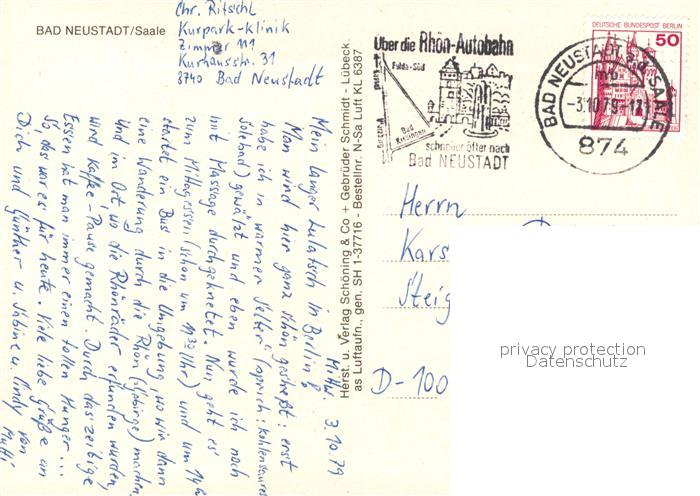 BAD NEUSTADT/Saale
Chr. Ritschl
Kurpark-Klinik
Zimmer 111
Kurhausstr. 31
8740 Bad Neustadt
Über die Rhön-Autobahn
Fulda-Süd
Bad Kissingen
schneller öfter nach
Bad NEUSTADT
DEUTSCHE BUNDESPOST BERLIN
50
BAD NEUSTADT a.d. SAALE
mb
-3.10.79-17
874
Mi-Hw. 3.10.79
Mein langer Lulatsch in Berlin!
Man wird hier ganz schön gestreßt: erst
habe ich in warmer "Selter" (sprich: kohlensaures
Solebad) gewälzt und eben wurde ich noch
mit Massage durchgeknetet. Nun geht es
zum Mittagessen (schon um 11³⁰ Uhr) und um 14 h
startet ein Bus in die Umgebung, wo wir dann
eine Wanderung durch die Rhön (Gebirge) machen.
Und in Ort wo die Rhönräder erfunden wurden,
wird Kaffee-Pause gemacht. Durch das zeitige
Essen hat man immer einen tollen Hunger...
So, das wär es für heute. Viele liebe Grüße an
Dich und Günther u. Sabine u. Cindy von
Mutti
Herst. u. Verlag Schöning & Co + Gebrüder Schmidt - Lübeck
as Luftaufn., gen. SH 1-37716 - Bestellnr. N-Sa Luft KL 6387
Herrn
Kars
Steig
D-100
privacy protection
Datenschutz